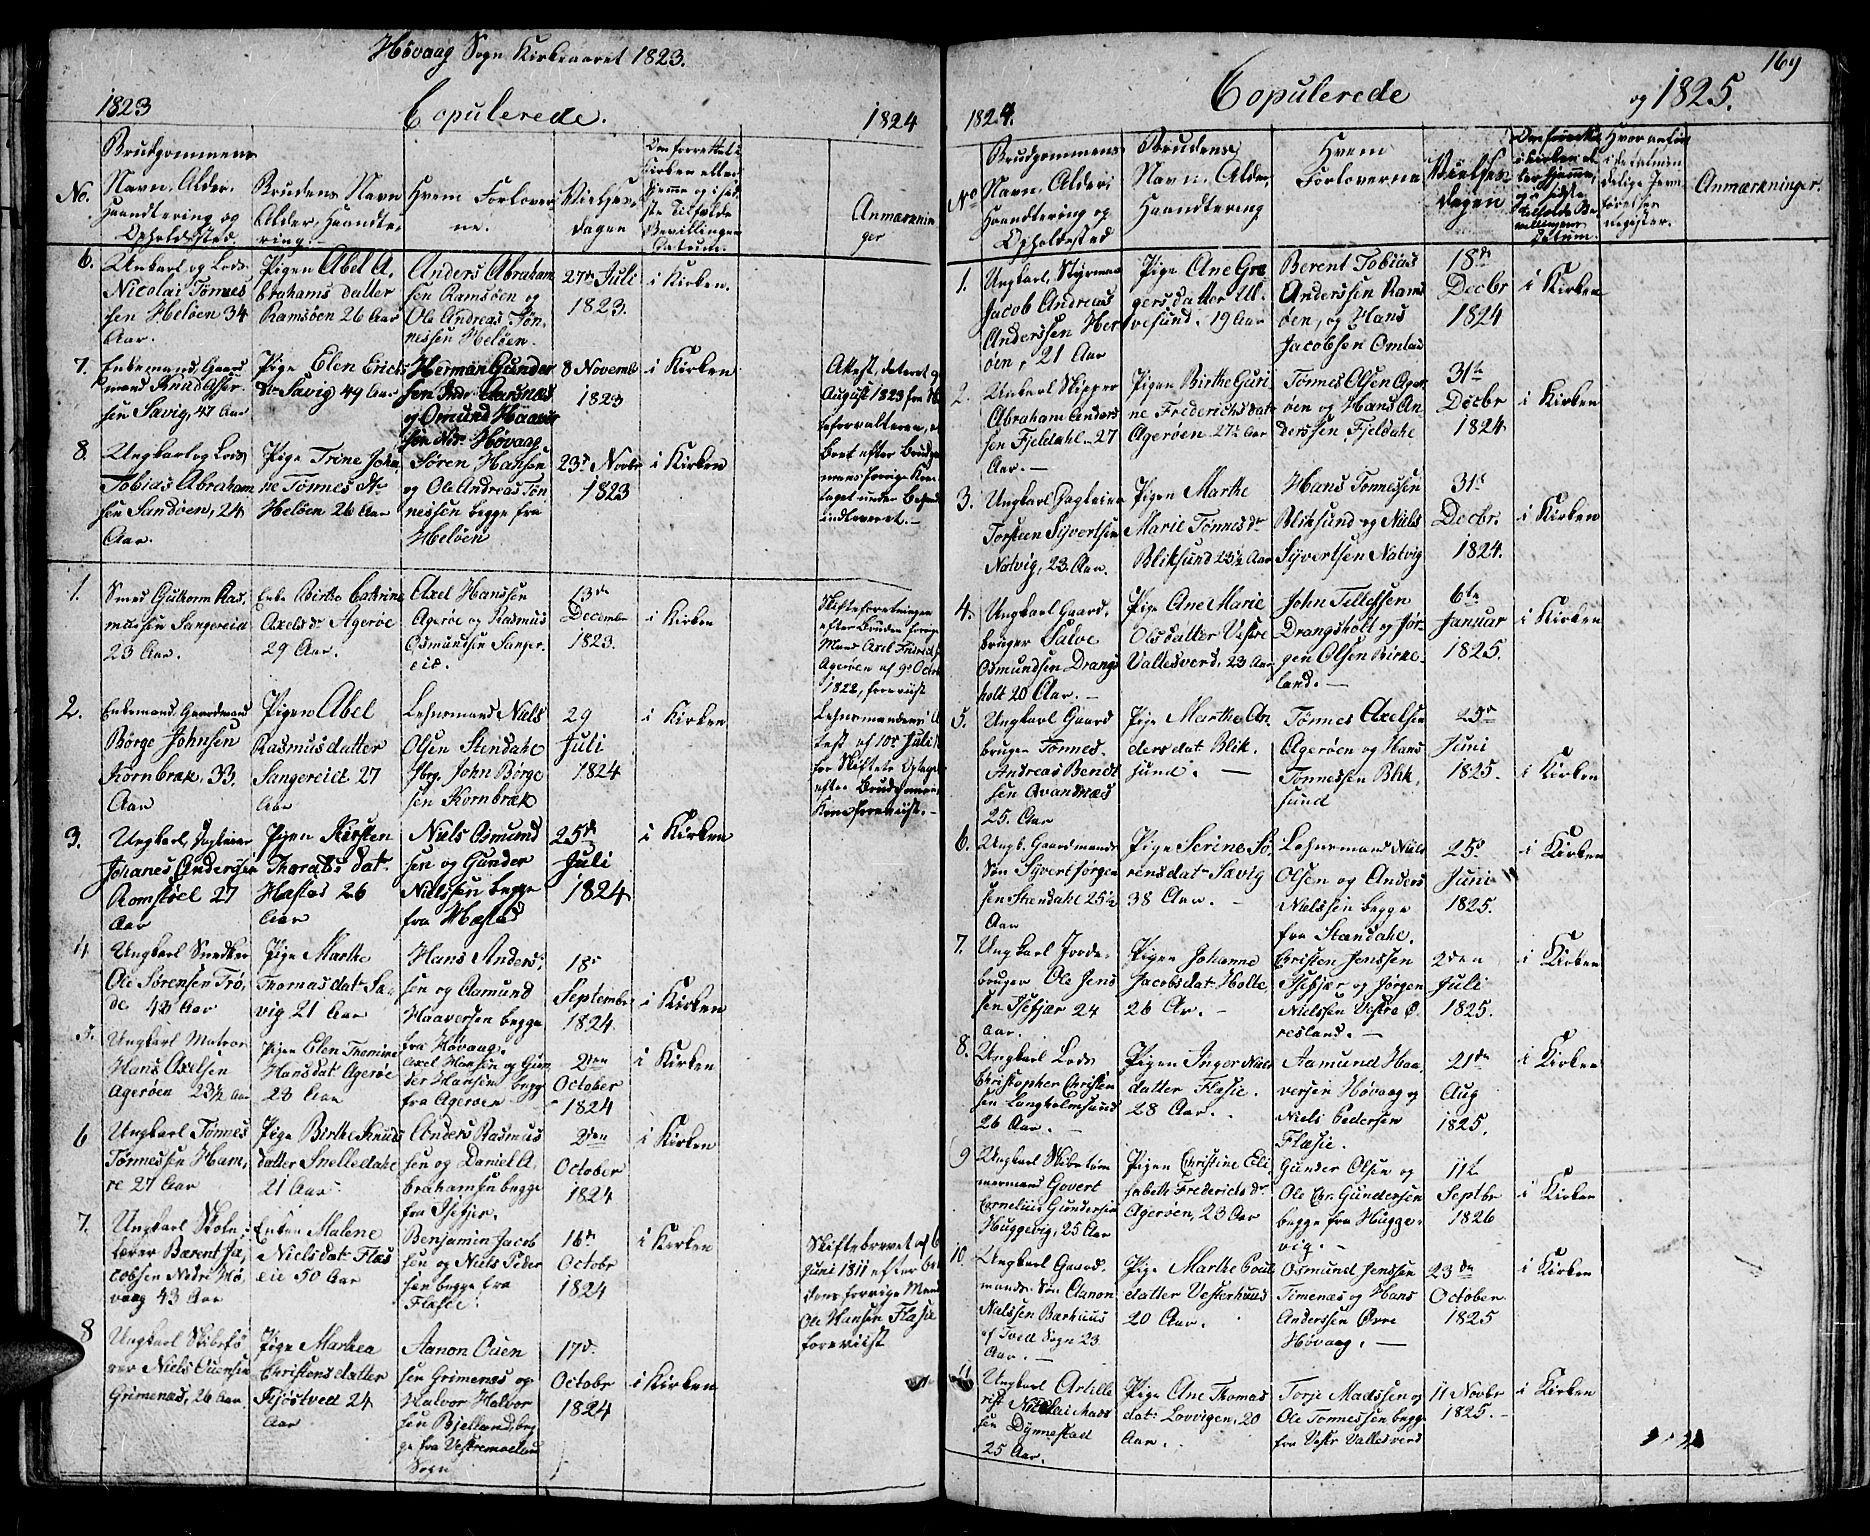 Høvaag Sogn Kirkeaaret 1823.
1823 Copulerede. 1824
No.
Brudgommens
Navn, Alder,
Haandtering og
Opholdssted.
Brudens Navn
Alder, Haandte-
ring.
Hvem Forlover-
ne.
Vielses-
dagen
Om forrettet i
Kirken eller
hjemme og i sid-
ste Tilfælde
Bevillingens
Datum.
Anmærknin-
ger
6.
Unkarl og Lods
Nicolai Tønnes
sen Heløen 34
Aar.
Pigen Abel A,
brahams datter
Ramsøen 26 Aar
Anders Abraham
sen Ramsøen og
Ole Andreas Tøn,
nessen Heløen.
27de Juli
1823.
i Kirken.
7.
Enkemand, Gaard
mand Knud Asser-
sen Savig, 47 Aar
Pige Elen Erichs
dr Savig 49 Aar
Herman Gunder
sen Indr Aarsnæs
og Omund Haaver
sen Ndr Høvaag
8 Novemb
1823
i Kirken
Attest, dateret 9
August 1823 fra
forvalteren,
Bret efter Brudg
mans forrige Kone
taget under Behand
indleveret.-
8.
Ungkarl og Lods
Tobias Abraham
sen Sandøen, 24
Aar.
Pige Trine John,
ne Tønnes dr
Heløen 26 Aar
Søren Hansen
og Ole Andreas Tøn
nessen begge fra
Heløen
23de Novbr
1823
i Kirken
1.
Smed Guthorm Ras,
mussen Sangereid
23 Aar.
Enke Birthe Catrine
Axelsdr Agerøe
29 Aar.
Axel Hanssen
Agerøe og Rasmus
Osmundsen Sanger
eid.
13de
December
1823.
i Kirken
Skifteforretningen
efter Bruden forrige
Mand Axel Fridrichs
Agerøen af 9de Octob
1822, foreviist
2.
Enkemand, Gaardmand
Børge Johnsen
Kornbræk, 33.
Aar
Pigen Abel
Rasmusdatter
Sangereid 27
Aar
Lehnsmand Niels
Olsen Stendahl
Ybrg. John Børge
sen Kornbræk
29
Juli
1824
i Kirken
Lehnsmandens At
test af 10de Juli
for Skiftets Optagelse
efter Brudgommens
Kone foreviist.-
3.
Ungkarl, Dagleier
Johanes Andersen
Romstøel 27
Aar
Pigen Kirsten
Thorads dat
Hæstad 26
Aar
Niels Osmund
sen og Gunder
Nielssen begge
fra Hæstad
25de
Juli
1824
i Kirken
4
Ungkarl Snedker
Ole Sørensen Trø,
de 43 Aar
Pige Marthe
Thomasdat Sa-
vig 21 Aar
Hans Anders,
sen og Aamund
Haaversen begge
fra Høvaag.
18de
September
1824.
i Kirken
5.
Ungkarl Matros
Hans Axelsen
Agerøen 23½ Aar
Pigen Elen Thomine
Hansdat Agerøe
28 Aar
Axel Hansen og Gun
der Hansen begg
fra Agerøen
2den
October
1824
i Kirken
6
Ungkarl Tønnes
Tønnessen Ham,
re 27 Aar
Pige Birthe Knuds
datter Snelledahl
21 Aar
Anders Rasmus
sen og Daniel A,
brahamsen begge
fra Isefjer.
2den
October
1824
i Kirken
7.
Ungkarl Skole-
lærer Bærent Ja,
cobsen Nedre Hø,
vaag 43 Aar
Enken Malene
Nielsdat Flas
eie 50 Aar
Benjamin Jacob
sen og Niels Peder
sen begge fra
Flasie.
16de
Octobr
1824
i Kirken
Skiftebrevet af 6
Juni 1811 efter Bru
dens forrige Mand
Ole Hansen Flasie
foreviist
8
Ungkarl Skibsfø
rer Niels Ouensen
Grimenæs, 26 Aar
Pige Marthea
Christensdatter
Kjøstved 24
Aar
Aanon Ouen
sen Grimenæs og
Halvor Halvor
sen Bjelland, beg
ge fra Vestremoeland
Sogn
17de
Octobr
1824
i Kirken
169
1824. Copulerede og 1825.
No
Brudgommens
Navn, Alder,
Haandtering og
Opholdssted
Brudens
Navn, Alder,
Haandtering
Hvem
Forloverne
Vielses
dagen
Om forrettet
i Kirken el
ler hjemme,
og i sidste
Tilfælde Be
villingens
Datum.
Hvor anført
i det almin
delige Jevn
førelses
register.
Anmærkninger.
1.
Ungkarl, Styrmand
Jacob Andreas
Anderssen Her
øen, 21 Aar
Pige Ane Gre
gersdatter Ul-
vesund. 19 Aar
Berent Tobias
Anderssen Rams
øen, og Hans
Jacobsen Omland
18de
Decbr
1824
i Kirken
2.
Unkarl Skipper
Abraham Anders
sen Fjeldahl 27
Aar.-
Pigen Birthe Guri
ne Frederichsdat
Agerøen 27½ Aar
Tønnes Olsen Ager
øen og Hans An
derssen Fjeldahl
31te
Decbr
1824
i Kirken
3.
Ungkarl Dagleier
Torsteen Syvertsen
Natvig, 23 Aar.
Pigen Marthe
Marie Tønnesdr
Bliksund 25½ Aar
Hans Tønnessen
Bliksund og Niels
Syvertsen Natvig
31te
Decbr.
1824.
i Kirken
4.
Ungkarl Gaard,
bruger Salve
Osmundsen Drangs
holt 20 Aar.-
Pige Ane Marie
Olsdatter Vestre
Vallesverd, 23 Aar
John Tellefsen
Drangsholt og Jør-
gen Olsen Birke-
land.-
6te
Januar
1825.
i Kirken
5.
Ungkarl Gaard
bruger Tønnes
Andreas Bendt
sen Qvandnæs
25. Aar
Pige Marthe An
dersdat Blik-
sund. -
Tønnes Axelsen
Agerøen og Hans
Tønnessen Blik,
sund
23de
Juni
1825.
i Kirken
6.
Ungk. Gaardmands
Søn Syvert Jørgen
sen Stendahl 25½
Aar
Pige Serine Sø,
rensdat Savig
38 Aar. -
Lehnsmand Niels
Olsen og Anders
Nielssen begge
fra Stændahl.
25de
Juni
1825.
i Kirken
7.
Ungkarl Jorde-
bruger Ole Jens
sen Isefjær 24
Aar.
Pigen Johanne
Jacobsdat Holte
26 Ar. -
Christen Jenssen
Isefjær og Jørgen
Nielssen Vestre O
resland. -
2den
Juli
1825.
i Kirken
8.
Ungkarl Lods
Christopher Christen
sen Langholmsund
26 Aar. -
Pigen Inger Niels
datter Flasie.
28 Aar. -
Aamund Haa
versen Høvaag og
Niels Pedersen
Flæsie.
21de
Aug
1825.
i Kirken
9
Ungkarl Skibstøm
mermand Govert
Cornelius Gundersen
Huggevig, 25 Aar
Pigen Christine Eli
sabeth Frederichsdr
Agerøen, 23 Aar
Gunder Olsen og
Ole Chr. Gundersen
begge fra Hugge-
vig. -
11te
Septbr
1826
i Kirken
10
Ungkarl Gaard,
mands Søn Aanon
Nielssen Barhuus
af Tved Sogn 23
Aar. -
Pige Marthe Poul
datter Vesterhuus
20 Aar.
Osmund Jenssen
Timenæs og Hans
Anderssen Øvre
Høvaag. -
23de
October
1825
i Kirken
11
Ungkarl Artille
rist Nicolai Mads
sen Dynnestad
25 Aar.
Pige Ane Thomas
dat Lovvigen, 20
Aar.
Torje Madssen og
Ole Tønnessen begge
fra Vestr Vallesverd
11 Novbr
1825. -
i Kirken